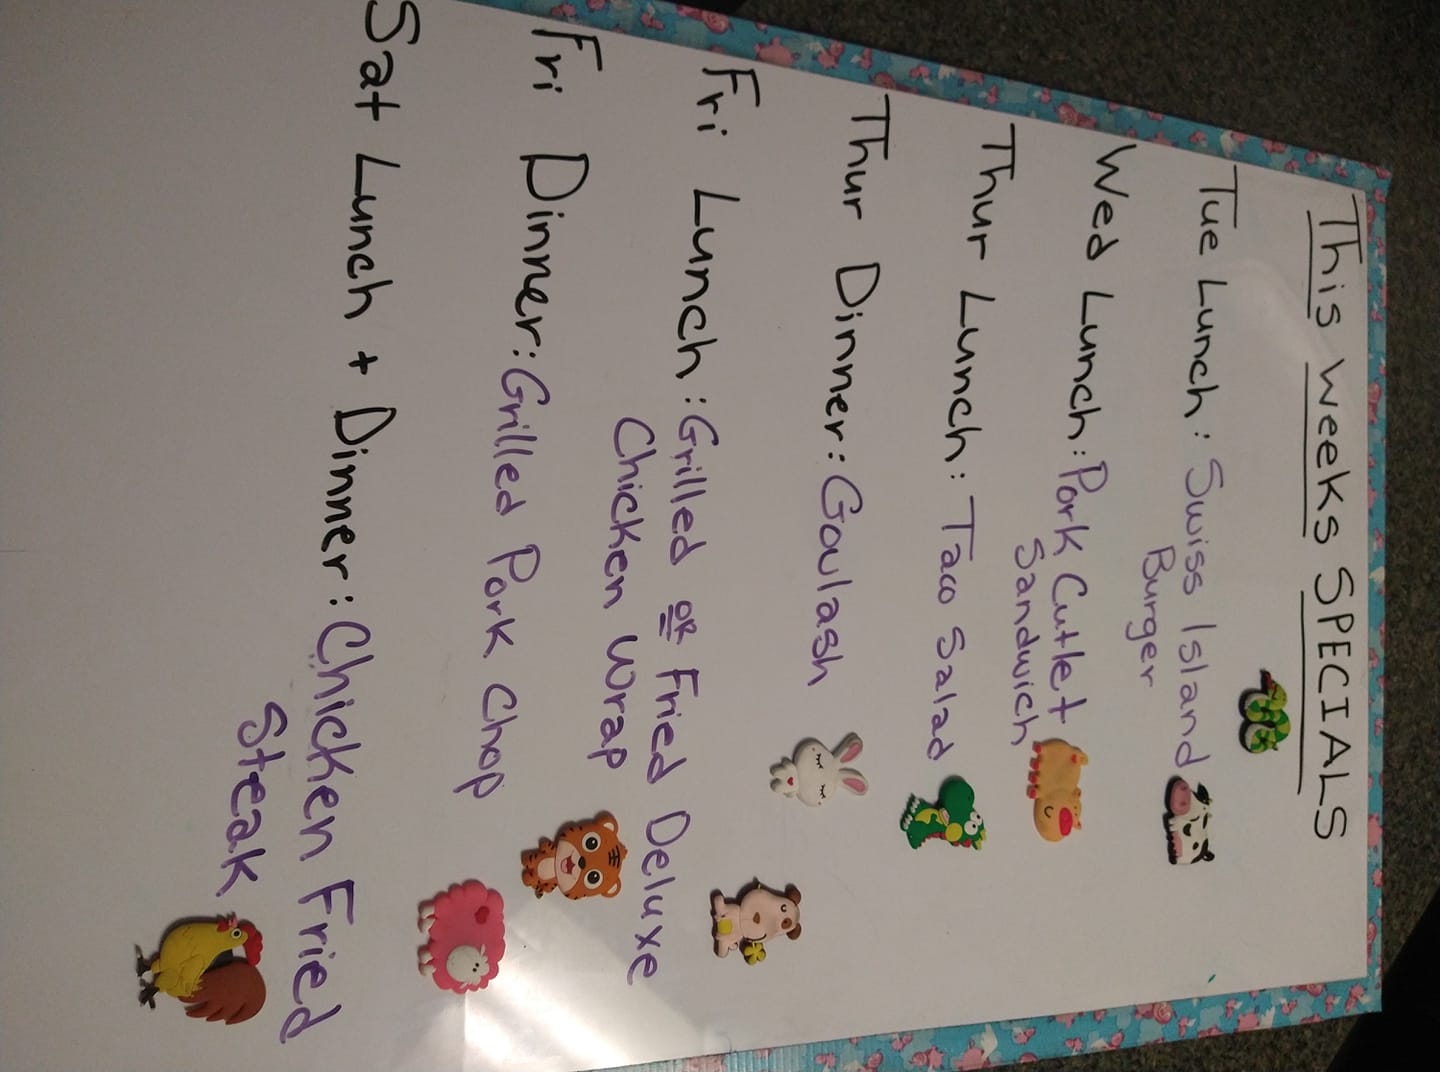 This weeks SPECIALS
Tue Lunch: Swiss Island
Burger
Wed Lunch: Pork Cutlet
Sandwich
Thur Lunch: Taco Salad
Thur Dinner: Goulash
Fri Lunch: Grilled OR Fried Deluxe
Chicken Wrap
Fri Dinner: Grilled Pork Chop
Sat Lunch + Dinner: Chicken Fried
Steak